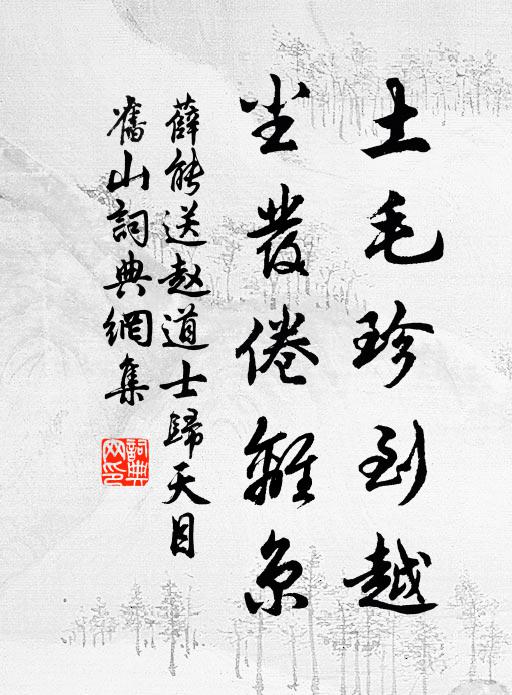 土毛珍到越
尘發倦離京
薛能送赵道士歸天目
舊山詞典網集
詞典
网印